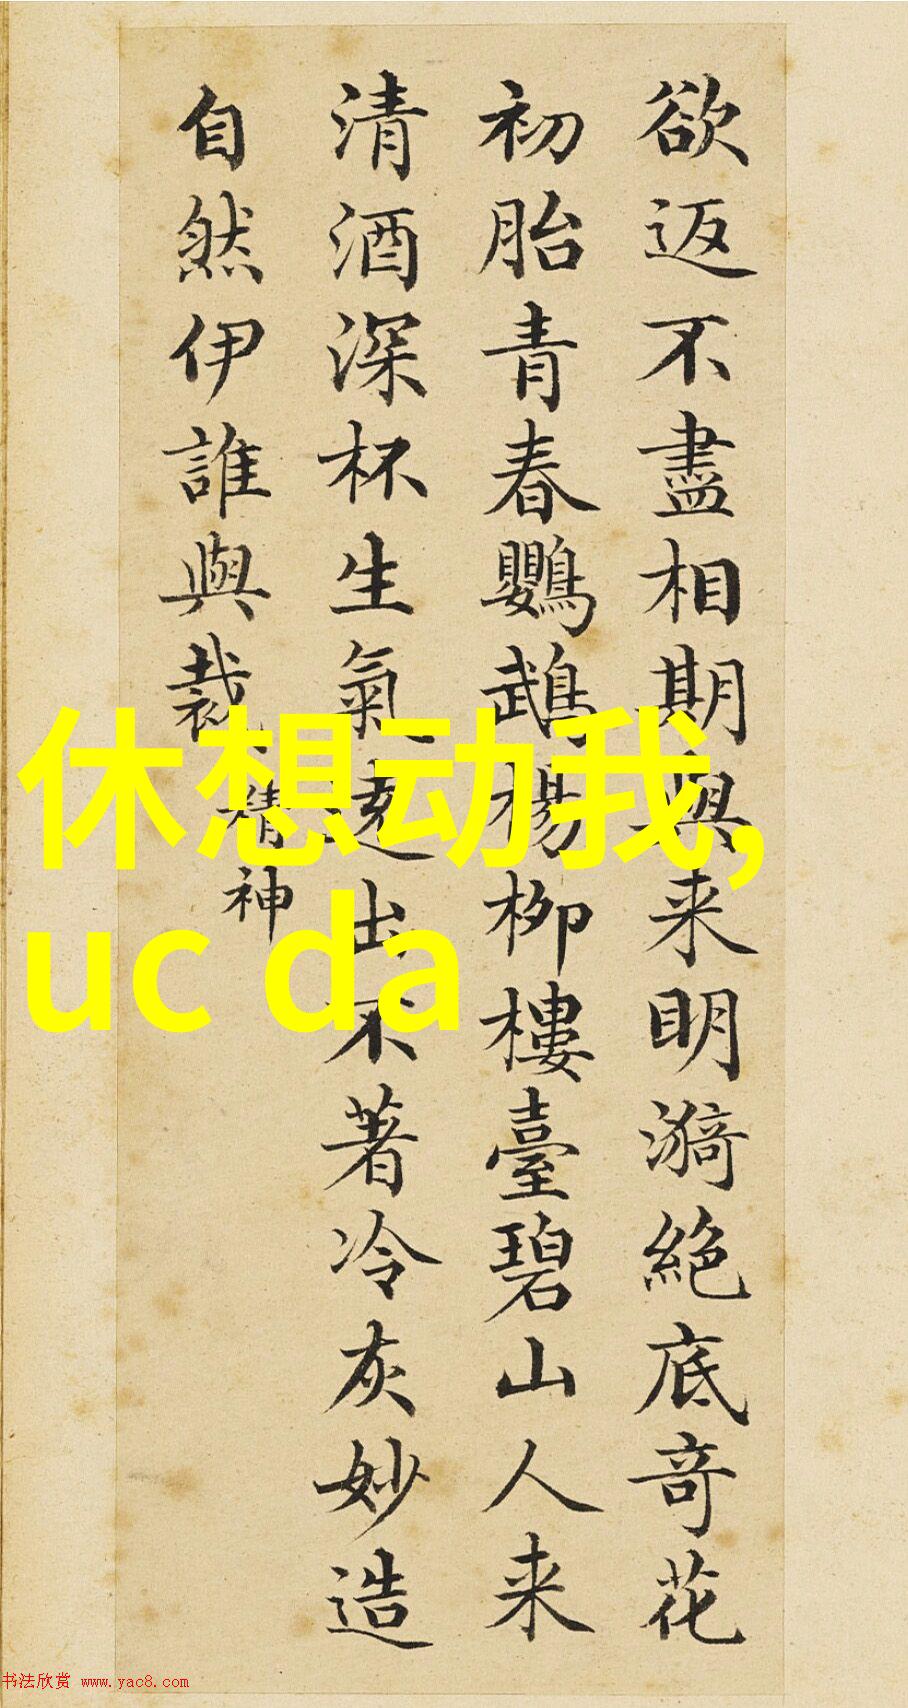 欲返不盡相期與来明漪絶底竒花
初胎青春鸚鵡楊柳樓臺碧山人来
清酒深杯生氣遠出不著冷灰妙造
自然伊誰與裁
精神
休想动我,
uc da
书法欣赏 www.yac8.com